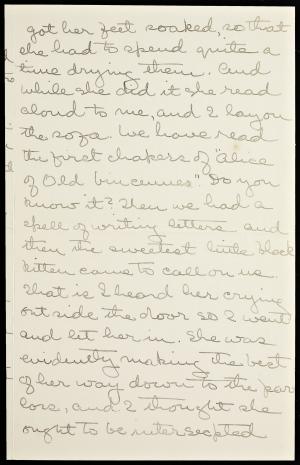 got her feet soaked, so that
she had to spend quite a
time drying them. And
while she did it she read
aloud to me, and I lay on
the sofa. We have read
the first chapers of "Alice
of Old Vincennes". Do you
know it? Then we had a
spell of writing letters and
then the sweetest little black
kitten came to call on us.
That is I heard her crying
out side the door so I went
and let her in. She was
evidently making the best
of her way down to the par
lors, and I thought she
ought to be intersepted